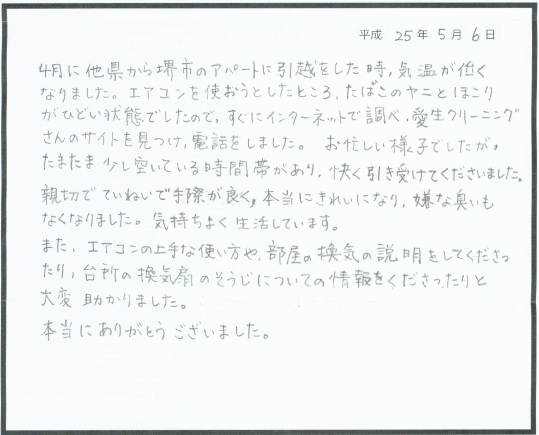 平成 25年 5月 6日
4月に他県から堺市のアパートに引越をした時,気温が低く
なりました。エアコンを使おうとしたところ,たばこのヤニとほこり
がひどい状態でしたので,すぐにインターネットで調べ,愛生クリーニング
さんのサイトを見つけ,電話をしました。 お忙しい様子でしたが。
たまたま少し空いている時間帯があり,快く引き受けてくださいました。
親切でていねいで手際が良く,本当にきれいになり,嫌な臭いも
なくなりました。気持ちよく生活しています。
また,エアコンの上手な使い方や,部屋の換気の説明をしてくださっ
たり,台所の換気扇のそうじについての情報をくださったりと
大変助かりました。
本当にありがとうございました。